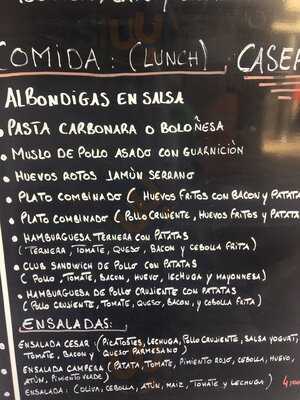 COMIDA: (LUNCH) CASER
ALBONDIGAS EN SALSA
• PASTA CARBONARA O BOLOÑESA
• MUSLO DE POLLO ASADO CON GUARNICIÓN
• HUEVOS ROTOS JAMÓN SERRANO
• PLATO COMBINADO ( HUEVOS FRITOS CON BACON Y PATATA
• PLATO COMBINADO ( POLLO CRUJIENTE, HUEVOS FRITOS Y PATATA
• HAMBURGUESA TERNERA CON PATATAS
( TERNERA, TOMATE, QUESO, BACON Y CEBOLLA FRITA )
• CLUB SANDWICH DE POLLO CON PATATAS
( POLLO, TOMATE, BACON, HUEVO, LECHUGA Y MAYONNESA)
• HAMBURGUESA DE POLLO CRUJIENTE CON PATATAS
( POLLO CRUJIENTE, TOMATE, QUESO, BACON, Y CEBOLLA FRITA )
ENSALADAS:
ENSALADA CESAR: (PICATOSTES, LECHUGA, POLLO CRUJIENTE, SALSA YOGURT,
TOMATE, BACON Y QUESO PARMESANO)
ENSALADA CAMPERA ( PATATA, TOMATE, PIMIENTO ROJO, CEBOLLA, HUEVO,
ATÚN, PIMIENTO VERDE)
ENSALADA: (OLIVA, CEBOLLA, ATÚN, MAIZ, TOMATE Y LECHUGA)